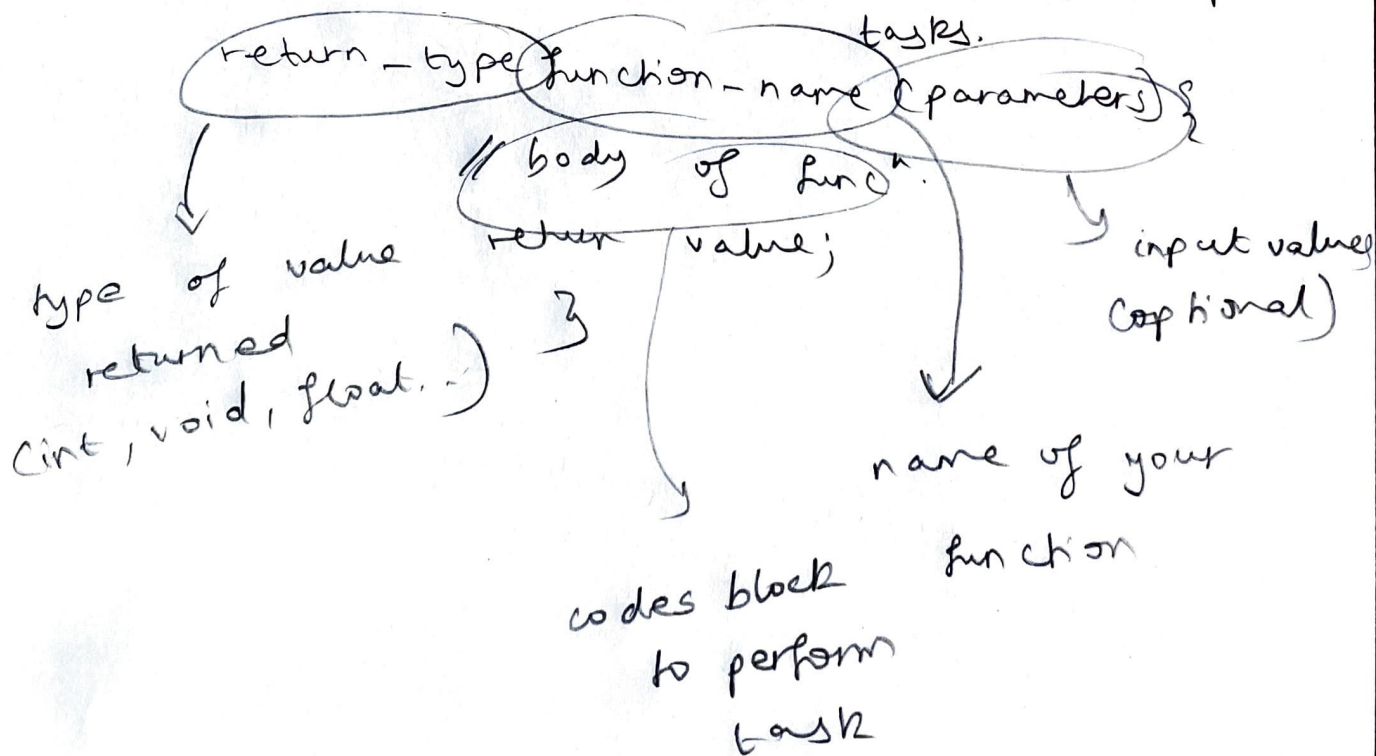 tasks.
return_type function_name (parameters) {
// body of funcⁿ.
return value;
}
type of value
returned
(int, void, float..)
input values
(optional)
name of your
function
codes block
to perform
task